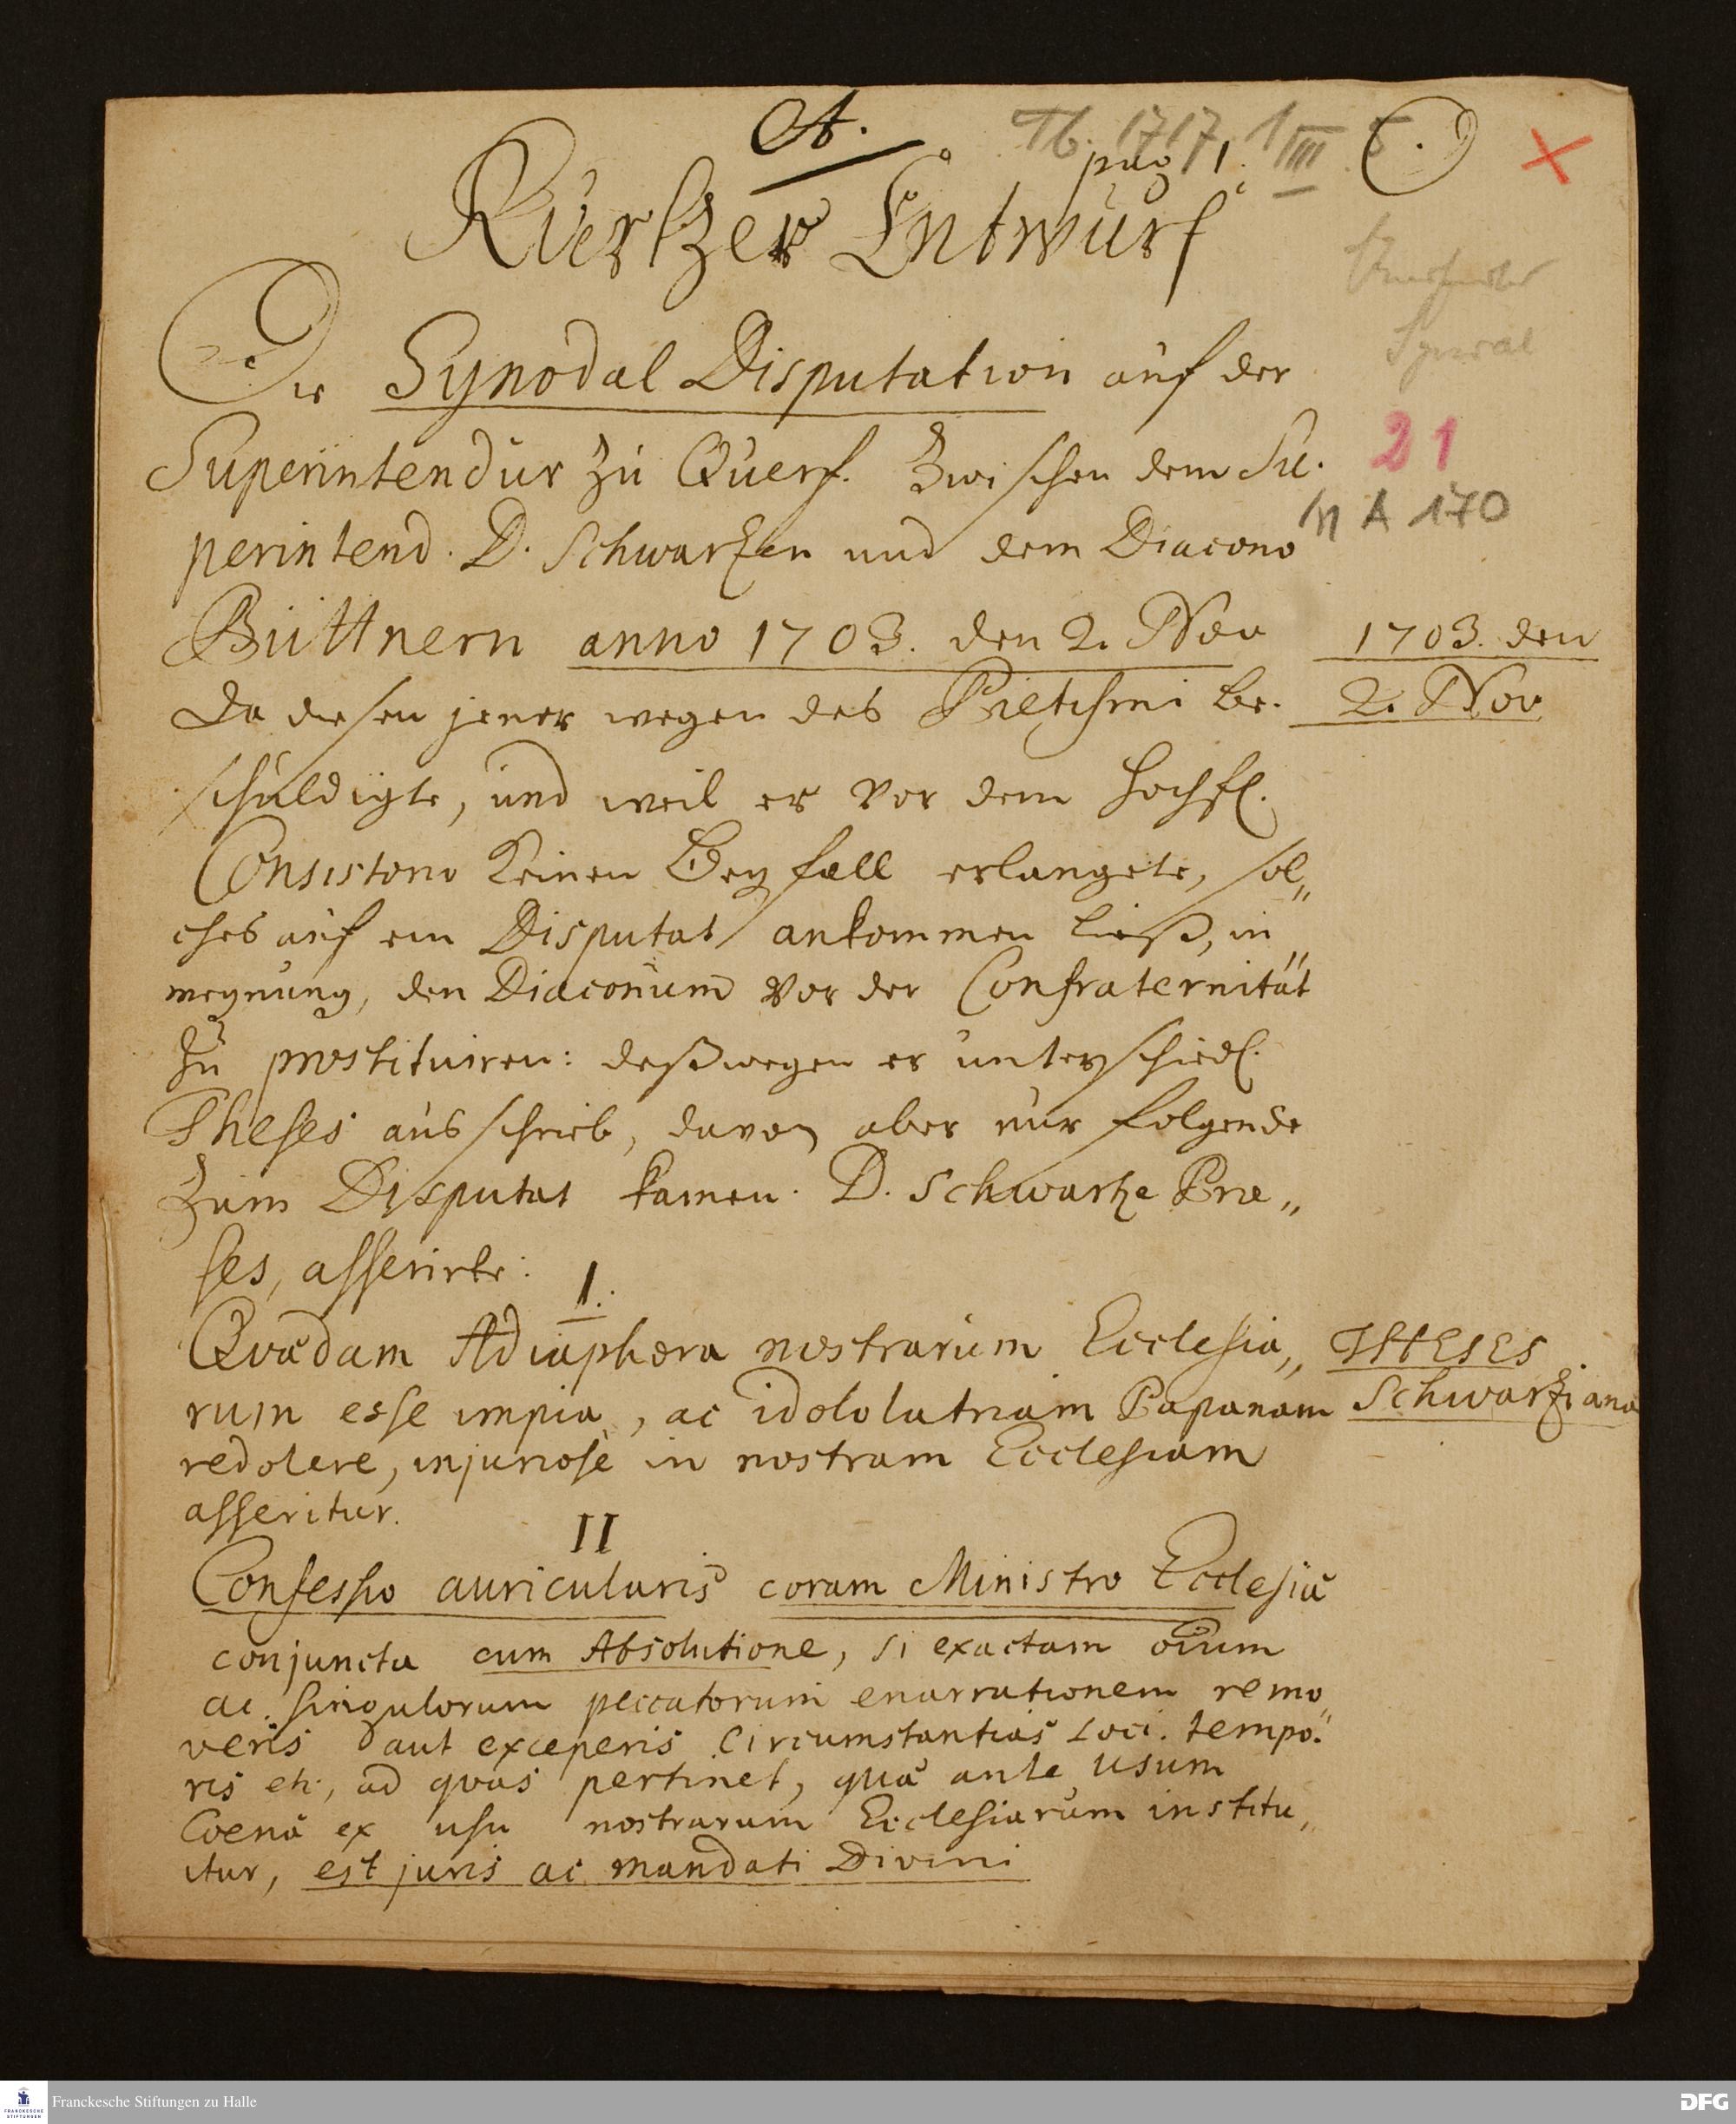 A.
Th. 1717 1 III 5
pag 1.
Kurtzer Entwurf
Die Synodal Disputation auf der
Superintendur zu Querf. zwischen dem Su-
perintend. D. Schwartzen und dem Diacono
Büttnern anno 1703. den 2. Nov
da diesen jener wegen des Pietismi be-
schuldigte, und weil er vor dem Hochfl.
Consistorio keinen Beyfall erlangete, sol„
ches auf ein Disputat ankommen ließ, in
meynung, den Diaconum vor der Confraternität
zu prostituiren: deßwegen er unterschiedl.
Theses ausschrieb, davon aber nur folgende
zum Disputat kamen. D. Schwartze Præ„
ses, asserirte:
I.
Qvædam Adiaphora nostrarum Ecclesia„
rum esse impia, ac idololatriam Papanam
redolere, injuriosè in nostram Ecclesiam
asseritur.
II
Confessio auricularis coram Ministro Ecclesiæ
conjuncta cum Absolutione, si exactam oium
ac singulorum peccatorum enarrationem remo„
veris aut exceperis circumstantias loci. tempo-
ris etc, ad qvas pertinet, quæ ante usum
Coenæ ex usu nostrarum Ecclesiarum institu„
itur, est juris ac mandati Divini
21
A 170
1703. den
2. Nov
THESES
Schwartziana
Franckesche Stiftungen zu Halle
FRANCKESCHE
STIFTUNGEN
DFG